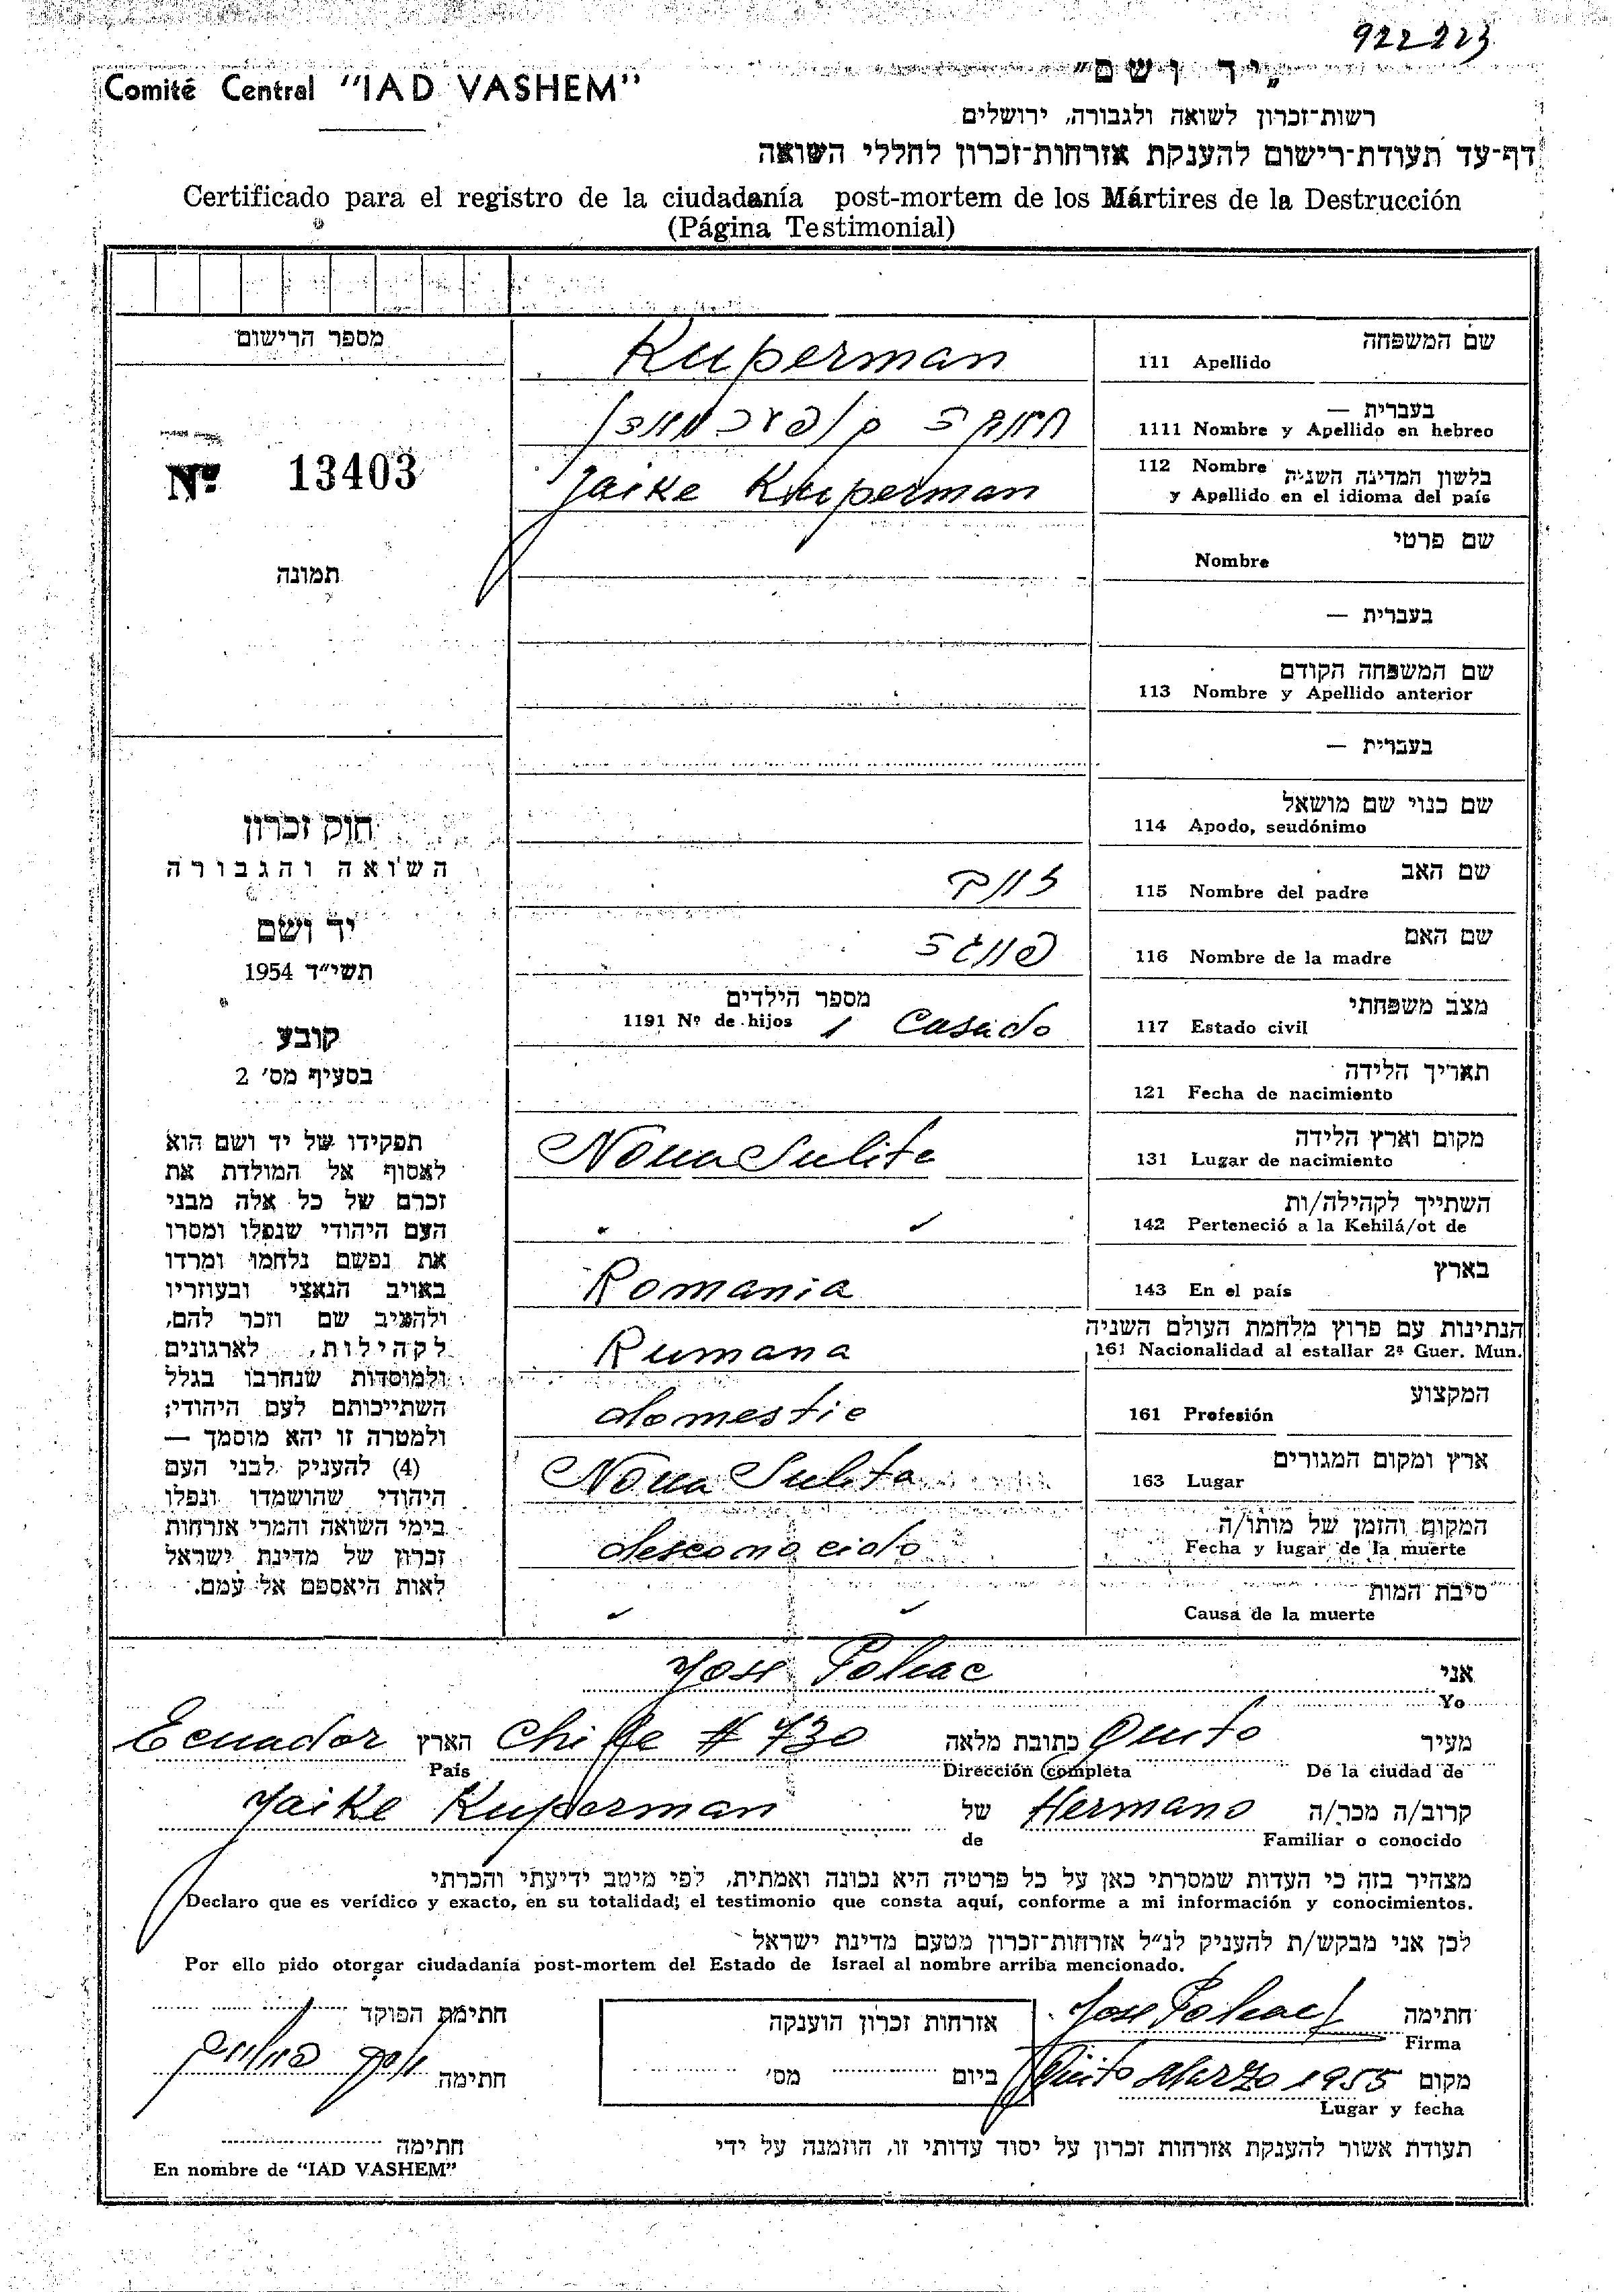 922223
Comité Central "IAD VASHEM"
"יד ושם"
רשות־זכרון לשואה ולגבורה, ירושלים
דף־עד תעודת־רישום להענקת אזרחות־זכרון לחללי השואה
Certificado para el registro de la ciudadanía post-mortem de los Mártires de la Destrucción
(Página Testimonial)
מספר הרישום
Nº 13403
תמונה
חוק זכרון
השואה והגבורה
יד ושם
תשי״ד 1954
קובע
בסעיף מס׳ 2
תפקידו של יד ושם הוא
לאסוף אל המולדת את
זכרם של כל אלה מבני
העם היהודי שנפלו ומסרו
את נפשם נלחמו ומרדו
באויב הנאצי ובעוזריו
ולהציב שם וזכר להם,
לקהילות, לארגונים
ולמוסדות שנחרבו בגלל
השתייכותם לעם היהודי;
ולמטרה זו יהא מוסמך —
(4) להעניק לבני העם
היהודי שהושמדו ונפלו
בימי השואה והמרי אזרחות
זכרון של מדינת ישראל
לאות היאספם אל עמם.
שם המשפחה
111 Apellido Kuperman
בעברית —
1111 Nombre y Apellido en hebreo
112 Nombre בלשון המדינה השנית
y Apellido en el idioma del país Jaike Kuperman
שם פרטי
Nombre
בעברית —
שם המשפחה הקודם
113 Nombre y Apellido anterior
בעברית —
שם כנוי שם מושאל
114 Apodo, seudónimo
שם האב
115 Nombre del padre
שם האם
116 Nombre de la madre
מצב משפחתי
117 Estado civil Casado
מספר הילדים
1191 Nº de hijos 1
תאריך הלידה
121 Fecha de nacimiento
מקום וארץ הלידה
131 Lugar de nacimiento Noua Sulita
השתייך לקהילה/ות
142 Perteneció a la Kehilá/ot de
בארץ
143 En el país Romania
הנתינות עם פרוץ מלחמת העולם השניה
161 Nacionalidad al estallar 2ª Guer. Mun. Rumana
המקצוע
161 Profesión domestic
ארץ ומקום המגורים
163 Lugar Noua Sulita
המקום והזמן של מותו/ה
Fecha y lugar de la muerte desconocido
סיבת המות
Causa de la muerte
אני
Yo
מעיר Quito כתובת מלאה Chile # 730 הארץ Ecuador
De la ciudad de Dirección completa País
קרוב/ה מכר/ה Hermano של Jaike Kuperman
Familiar o conocido de
מצהיר בזה כי העדות שמסרתי כאן על כל פרטיה היא נכונה ואמתית, לפי מיטב ידיעתי והכרתי
Declaro que es verídico y exacto, en su totalidad; el testimonio que consta aquí, conforme a mi información y conocimientos.
לכן אני מבקש/ת להעניק לנ״ל אזרחות־זכרון מטעם מדינת ישראל
Por ello pido otorgar ciudadanía post-mortem del Estado de Israel al nombre arriba mencionado.
חתימה
Firma
מקום Quito Marzo 1955
Lugar y fecha
אזרחות זכרון הוענקה
ביום מס׳
חתימת הפוקד
חתימה
תעודת אשור להענקת אזרחות זכרון על יסוד עדותי זו, הוזמנה על ידי
חתימה
En nombre de "IAD VASHEM"